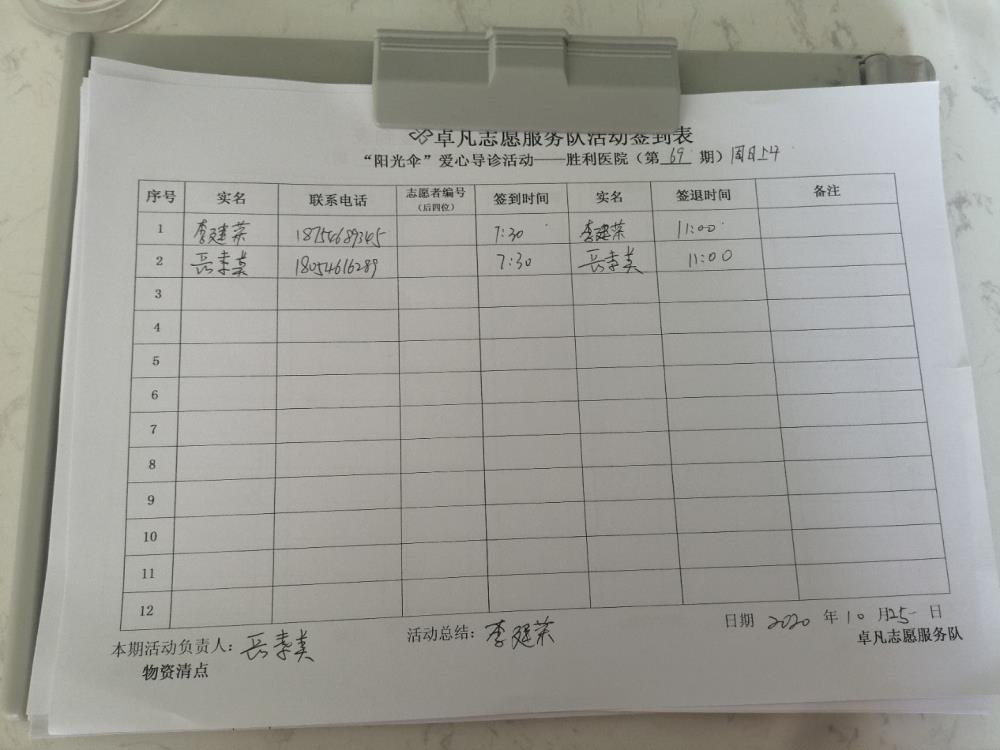 卓凡志愿服务队活动签到表
“阳光伞”爱心导诊活动——胜利医院（第 69 期）周日上午
序号 实名 联系电话 志愿者编号（后四位） 签到时间 实名 签退时间 备注
1 李建荣 18754689345 7:30 李建荣 11:00
2 岳素英 18054616289 7:30 岳素英 11:00
3
4
5
6
7
8
9
10
11
12
本期活动负责人：岳素英 活动总结：李建荣 日期 2020 年 10 月 25 日
物资清点 卓凡志愿服务队